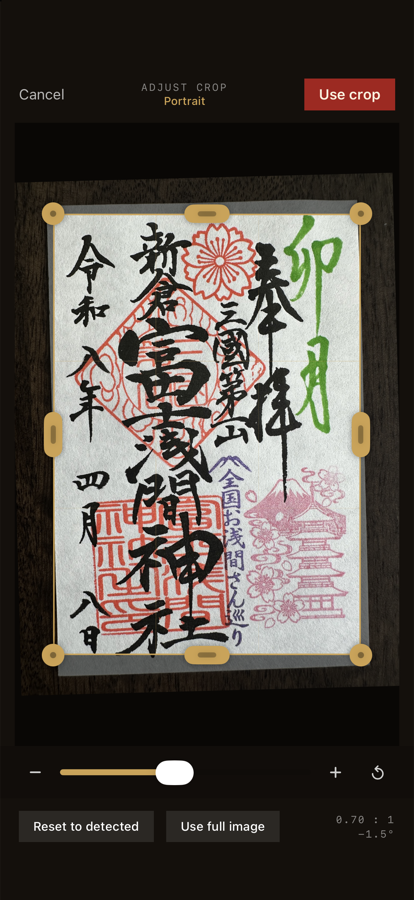 Cancel
ADJUST CROP
Portrait
Use crop
卯月
奉拝
三國第一山
全国お浅間さん巡り
新倉
富士浅間神社
令和八年四月八日
Reset to detected
Use full image
0.70 : 1
−1.5°